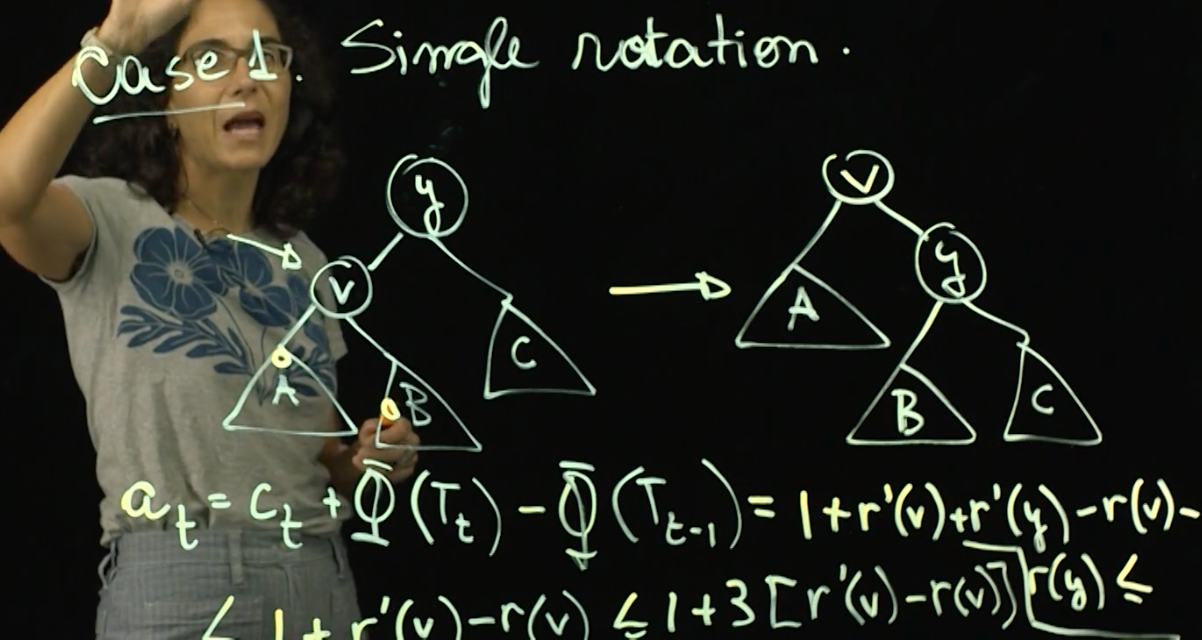 Case 1. Single rotation.
y
v
v
y
A
B
C
A
B
C
a_t = c_t + Φ(T_t) - Φ(T_{t-1}) = 1 + r'(v) + r'(y) - r(v) -
r(y) ≤
≤ 1 + r'(v) - r(v) ≤ 1 + 3 [r'(v) - r(v)]